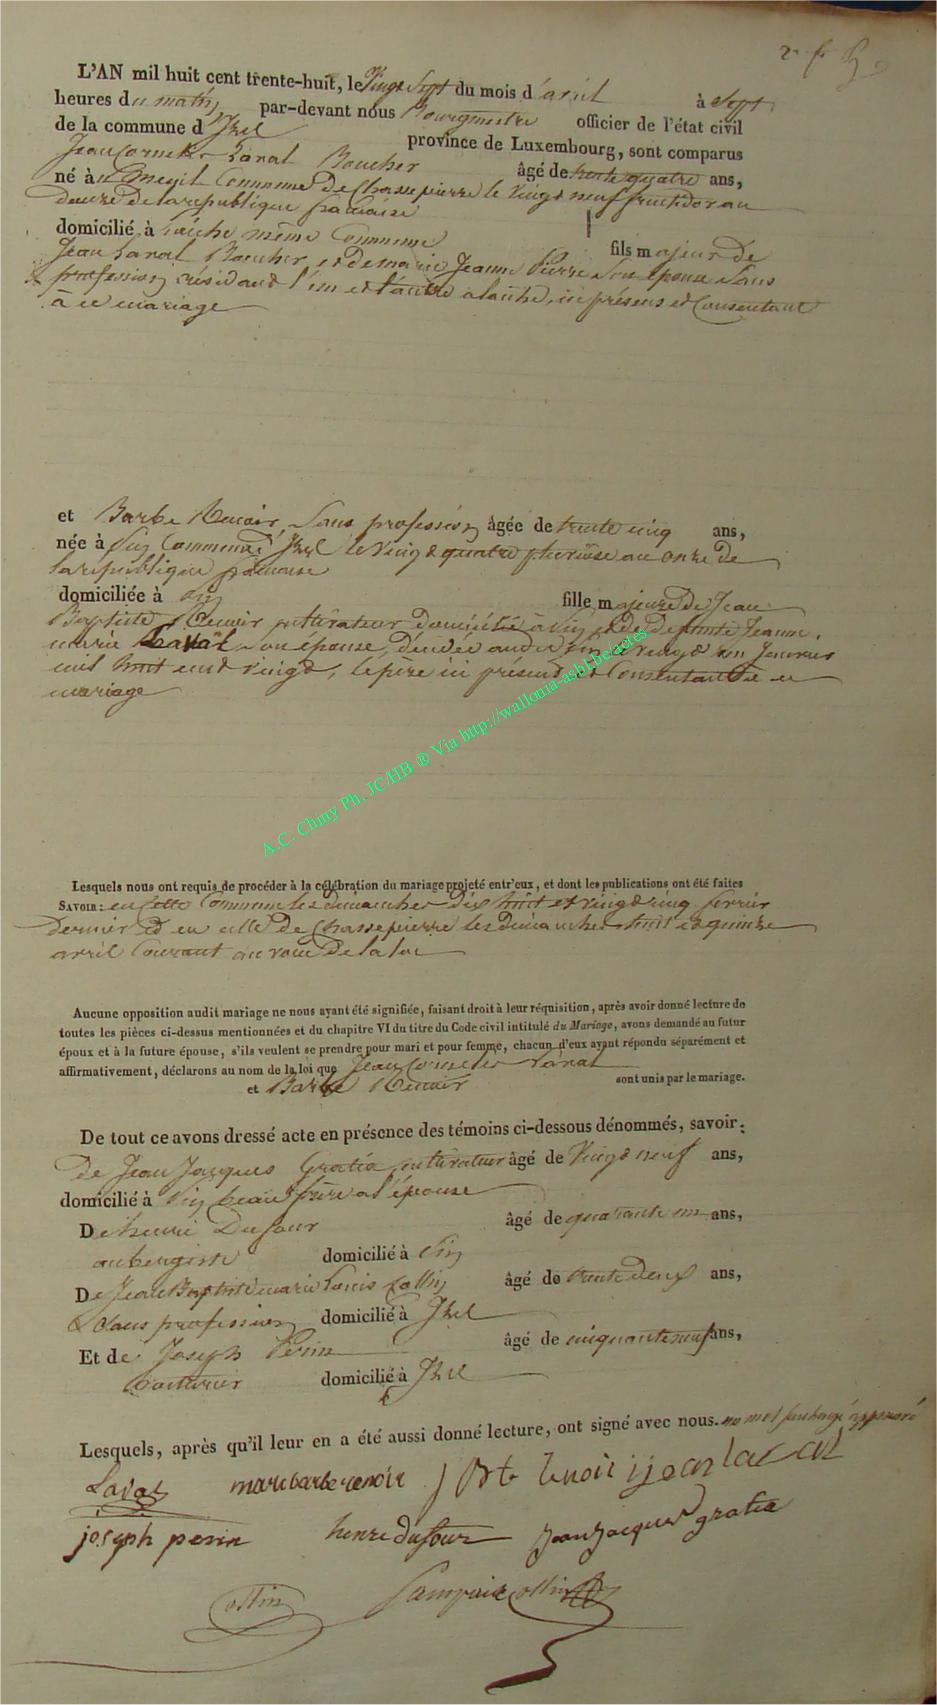 L'AN mil huit cent trente-huit, le Vingt Sept du mois d'avril à Sept
heures du matin par-devant nous Bourgmestre officier de l'état civil
de la commune d'Izel province de Luxembourg, sont comparus
Jean Corneller Lanal Boucher âgé de trente quatre ans,
né à Menil Commune de Chassepierre le Vingt neuf fructidor au
douze de la republique francaise
domicilié à Laiche même Commune fils majeur de
Jean Lanal Boucher et de marie Jeanne Pierre son épouse Sans
profession résidant l'un et l'autre a laiche, ici présens et Consentant
à ce mariage
et Barbe Renoir Sans profession âgée de trente cinq ans,
née à Pin Commune d'Izel le Vingt quatre pluviôse au onze de
la republique francaise
domiciliée à Pin fille majeure de Jean
Baptiste Renoir cultivateur domicilié à Pin et de défunte Jeanne
marie Laval son épouse, décédée audit Pin le vingt un Janvier
mil huit cent vingt, le père ici présent et Consentant à ce
mariage
A.C. Chiny Ph. JC/HB ® Via http://wallonia-asbl.be/actes
Lesquels nous ont requis de procéder à la célébration du mariage projeté entr'eux, et dont les publications ont été faites
SAVOIR: en cette Commune les dimanches dix huit et vingt cinq fevrier
dernier et en celle de Chassepierre les dimanches huit et quinze
avril Courant au voeu de la loi
Aucune opposition audit mariage ne nous ayant été signifiée, faisant droit à leur réquisition, après avoir donné lecture de
toutes les pièces ci-dessus mentionnées et du chapitre VI du titre du Code civil intitulé du Mariage, avons demandé au futur
époux et à la future épouse, s'ils veulent se prendre pour mari et pour femme, chacun d'eux ayant répondu séparément et
affirmativement, déclarons au nom de la loi que Jean Lanal
et Barbe Renoir sont unis par le mariage.
De tout ce avons dressé acte en présence des témoins ci-dessous dénommés, savoir:
De Jean Jacques Gratia cultivateur âgé de Vingt neuf ans,
domicilié à Pin beau frère a l'épouse
De henri Dufour âgé de quarante un ans,
aubergiste domicilié à Pin
De Jean Baptiste marie Louis Collin âgé de trente deux ans,
Sans profession domicilié à Izel
Et de Joseph Perin âgé de cinquante neuf ans,
domicilié à Izel
Lesquels, après qu'il leur en a été aussi donné lecture, ont signé avec nous. un mot surchargé approuvé
Laval marie barbe renoir J Bte Renoir jean laval
joseph perin henri dufour jean jacques gratia
Collin Collin